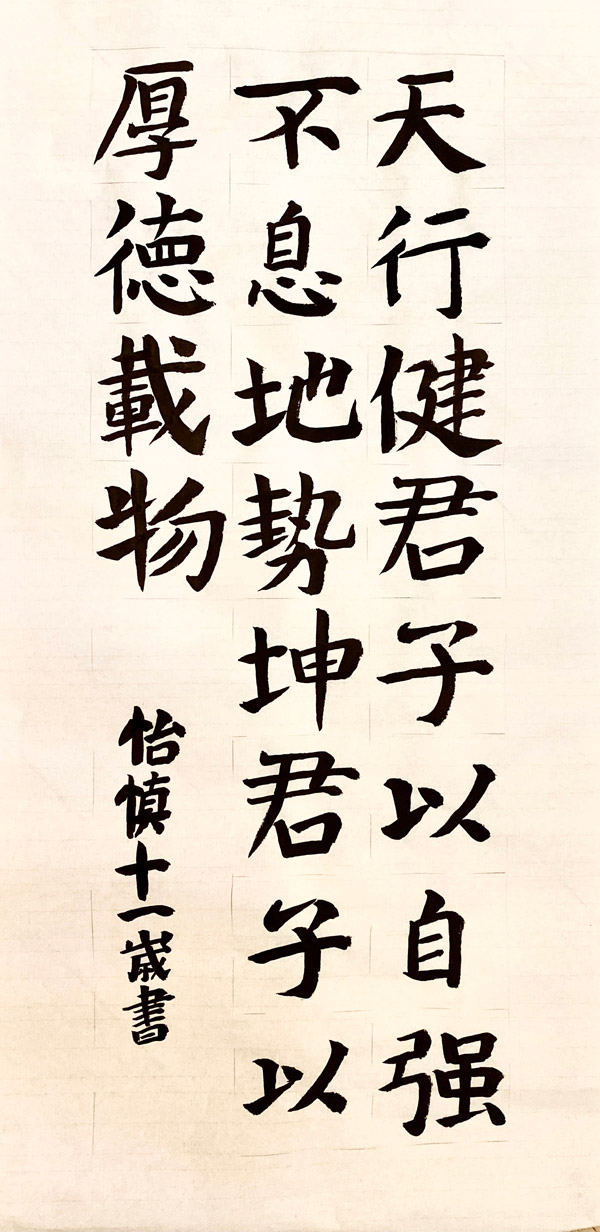 天行健君子以自强
不息地势坤君子以
厚德載物
怡慎十一歲書